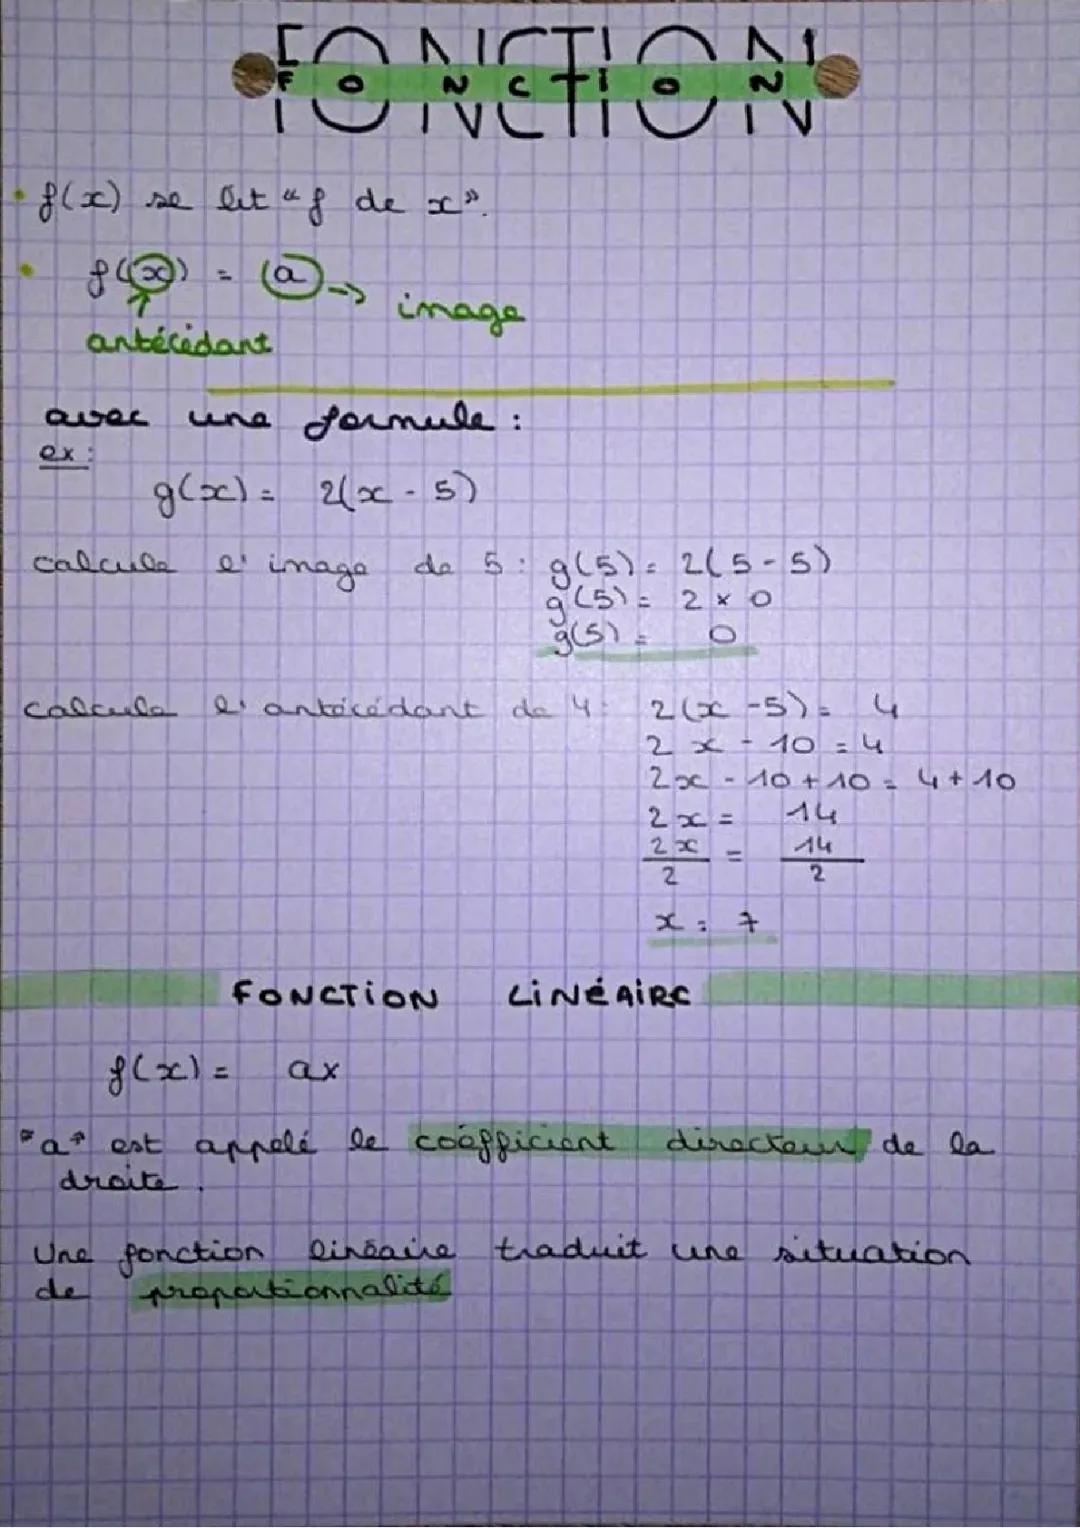 FONCTION
FONCTION
• f(x) se lit "f de x".
• f(x) = a → image
antécédant
avec une formule :
ex :
g(x) = 2(x - 5)
calcule l'image de 5 : g(5) = 2(5 - 5)
g(5) = 2 x 0
g(5) = 0
calcule l'antécédant de 4 : 2(x - 5) = 4
2x - 10 = 4
2x - 10 + 10 = 4 + 10
2x = 14
2x/2 = 14/2
x = 7
FONCTION LINÉAIRE
f(x) = ax
"a" est appelé le coéfficient directeur de la
droite.
Une fonction linéaire traduit une situation
de proportionnalité